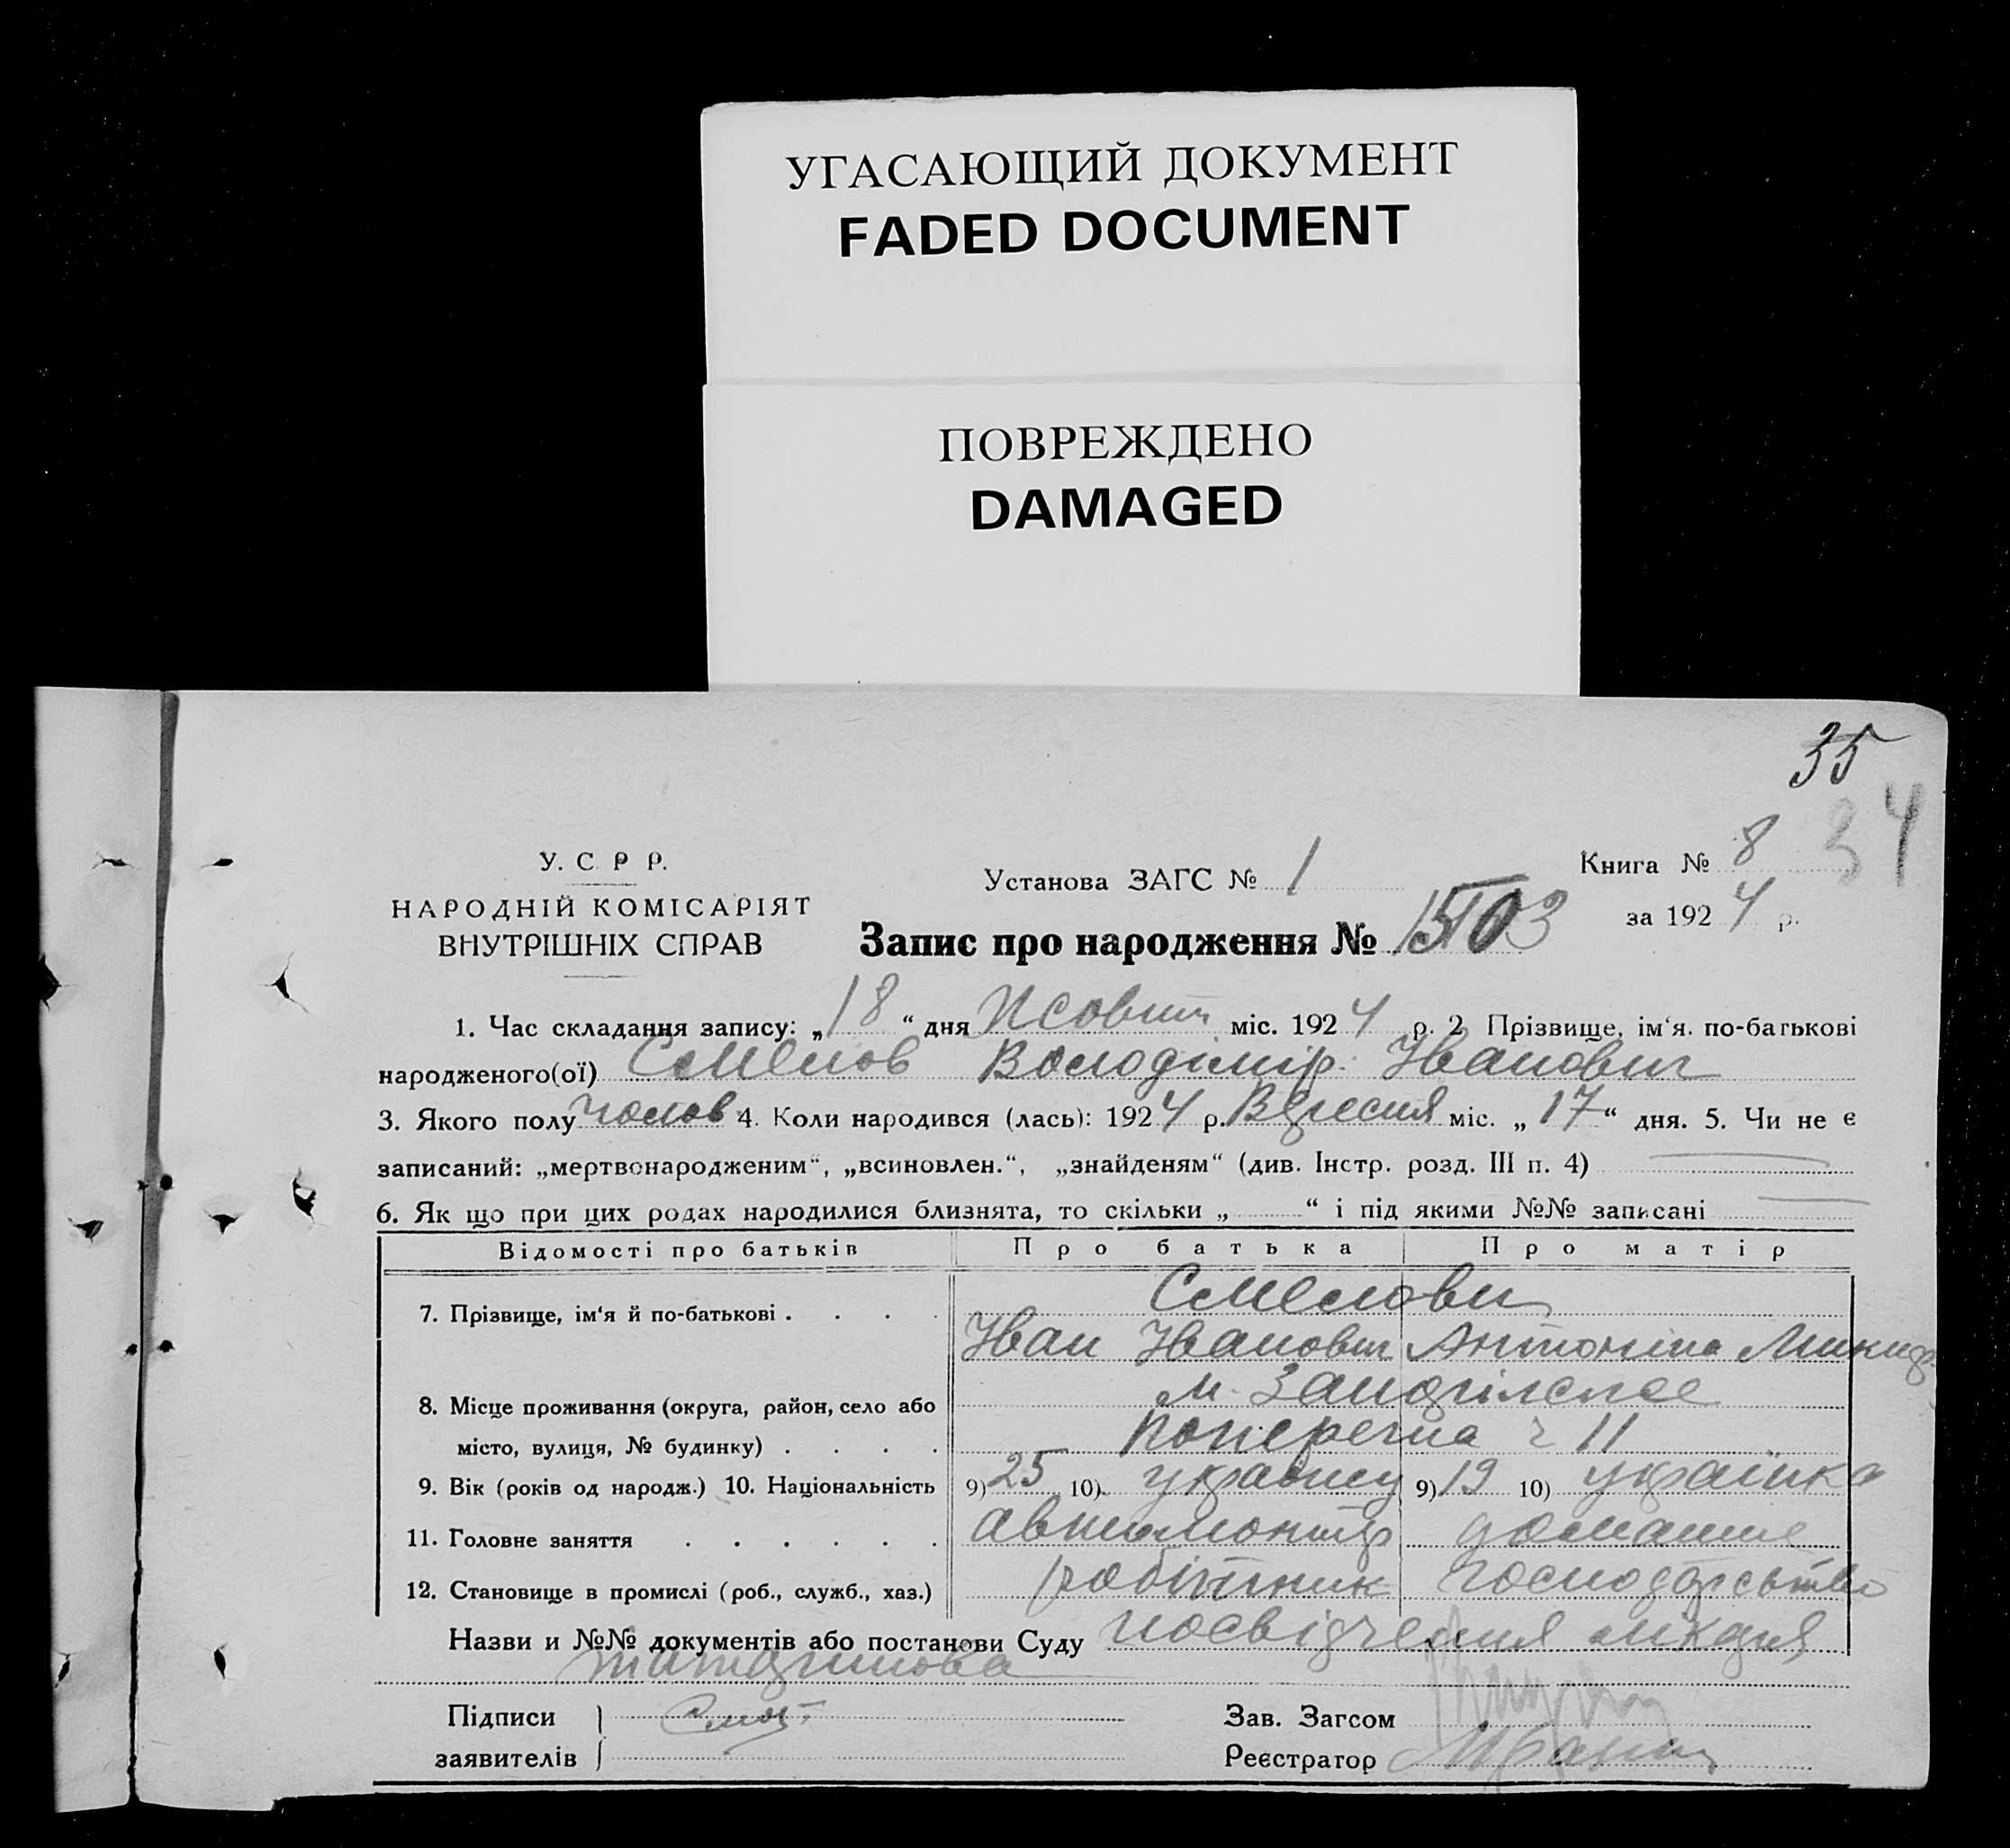 УГАСАЮЩИЙ ДОКУМЕНТ
FADED DOCUMENT
ПОВРЕЖДЕНО
DAMAGED
35
34
У. С Р Р.
НАРОДНІЙ КОМІСАРІЯТ
ВНУТРІШНІХ СПРАВ
Установа ЗАГС № 1
Книга № 8
за 1924 р.
Запис про народження № 1503
1. Час складання запису: „18“ дня Жовтня міс. 1924 р. 2 Прізвище, ім‘я. по-батькові
народженого(ої) Семенов Володімір Іванович
3. Якого полу чолов 4. Коли народився (лась): 1924 р. Вересня міс. „17“ дня. 5. Чи не є
записаний: „мертвонародженим“, „всиновлен.“, „знайденям“ (див. Інстр. розд. III п. 4)
6. Як що при цих родах народилися близнята, то скільки „ “ і під якими №№ записані
Відомості про батьків Про батька Про матір
7. Прізвище, ім‘я й по-батькові . . . . Семенови
Іван Іванович Антоніна Микид.
8. Місце проживання (округа, район, село або м.
місто, вулиця, № будинку) . . . . Поперечна ч 11
9. Вік (років од народж.) 10. Національність 9) 25 10) 9) 19 10) українка
11. Головне заняття . . . . . . автомонтер домашнє
12. Становище в промислі (роб., служб., хаз.) робітник господарство
Назви и №№ документів або постанови Суду посвідчення лікаря
Підписи
заявителів
Зав. Загсом
Реєстратор